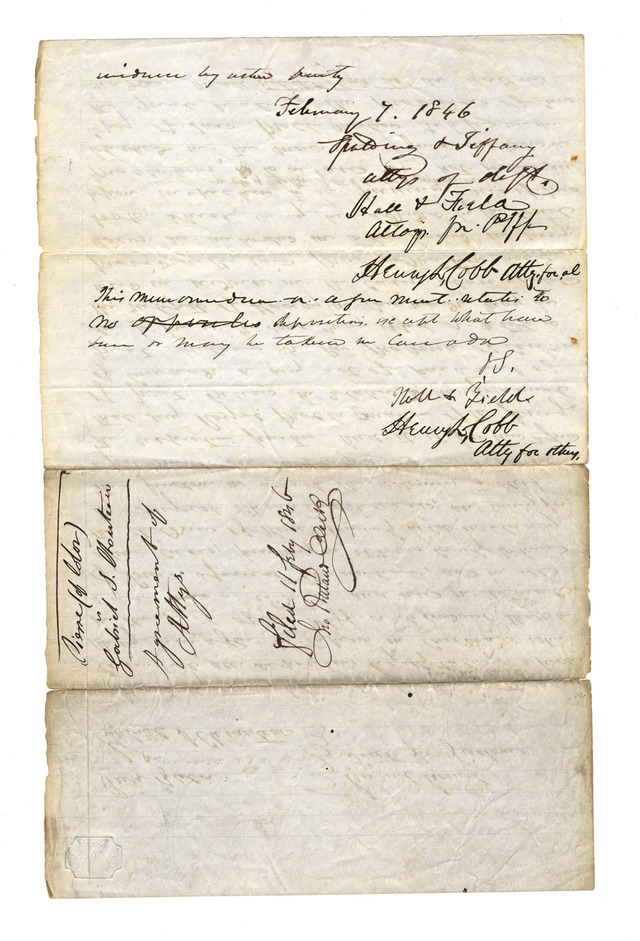 evidence by either party
February 7. 1846
Spalding & Tiffany
attys of deft.
Hall & Field
Attoys. for Plff
Henry L, Cobb Atty, for al
This memorandum or agreement relates to
no opposites depositions except what have
been or may be taken in Canada
J S.
Hall & Field
Henry L, Cobb
Atty for others,
Pierre (of Color)
vs
Gabriel S. Chouteau
Agreement of
Attys.
Filed 11 feby 1846
Jno Ruland Clerk